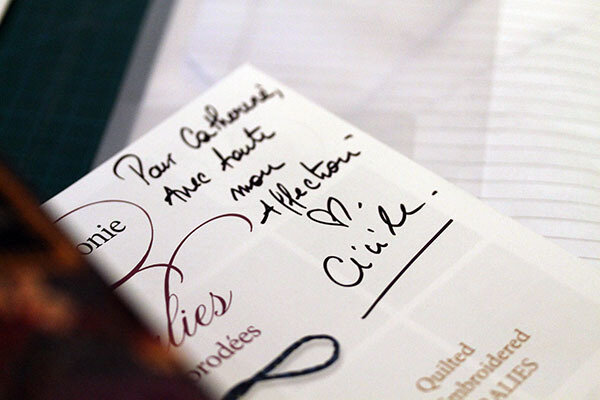 Pour Catherine,
Avec toute
mon
Affection
♡.
Cécile.
onie
lies
brodées
Quilted
Embroidered
DALIES